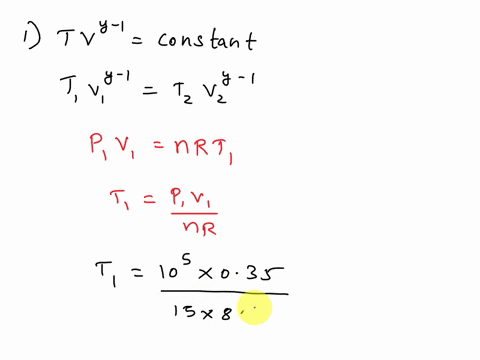 1) T V^{y-1} = constant
T_1 V_1^{y-1} = T_2 V_2^{y-1}
P_1 V_1 = nRT_1
T_1 = \frac{P_1 V_1}{nR}
T_1 = \frac{10^5 × 0.35}{15 × 8.}